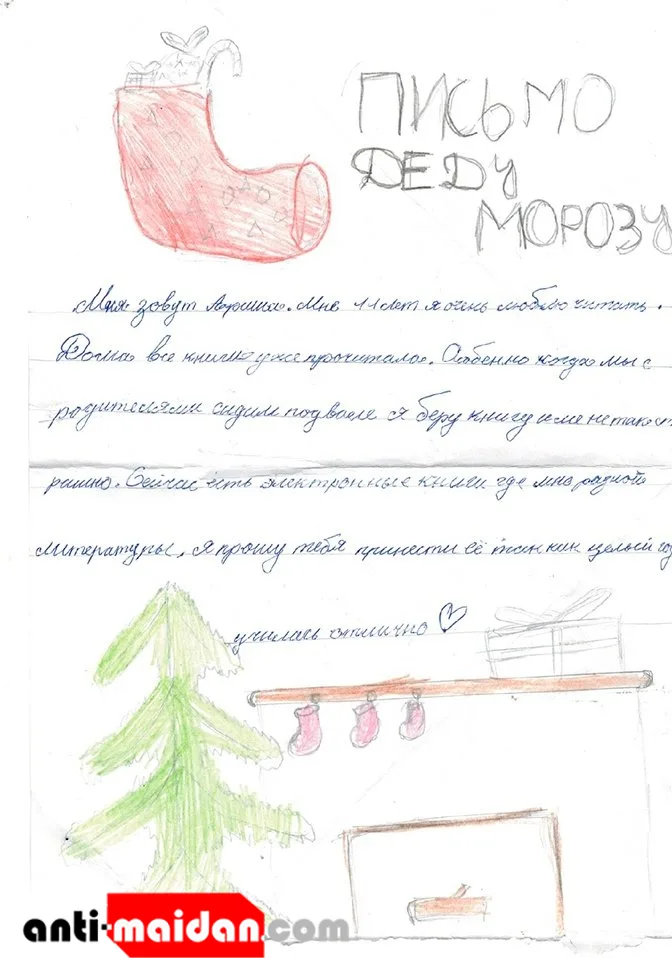 ПИСЬМО
ДЕДУ
МОРОЗУ
Меня зовут Мне 11 лет я очень люблю читать.
Дома все книги уже прочитала. Особенно когда мы с
родителями сидим подвале я беру книгу и мне не так ст
рашно. Сейчас есть электронные книги где много разной
литературы, я прошу тебя принести её так как целый год
училась отлично ♡
anti-maidan.com